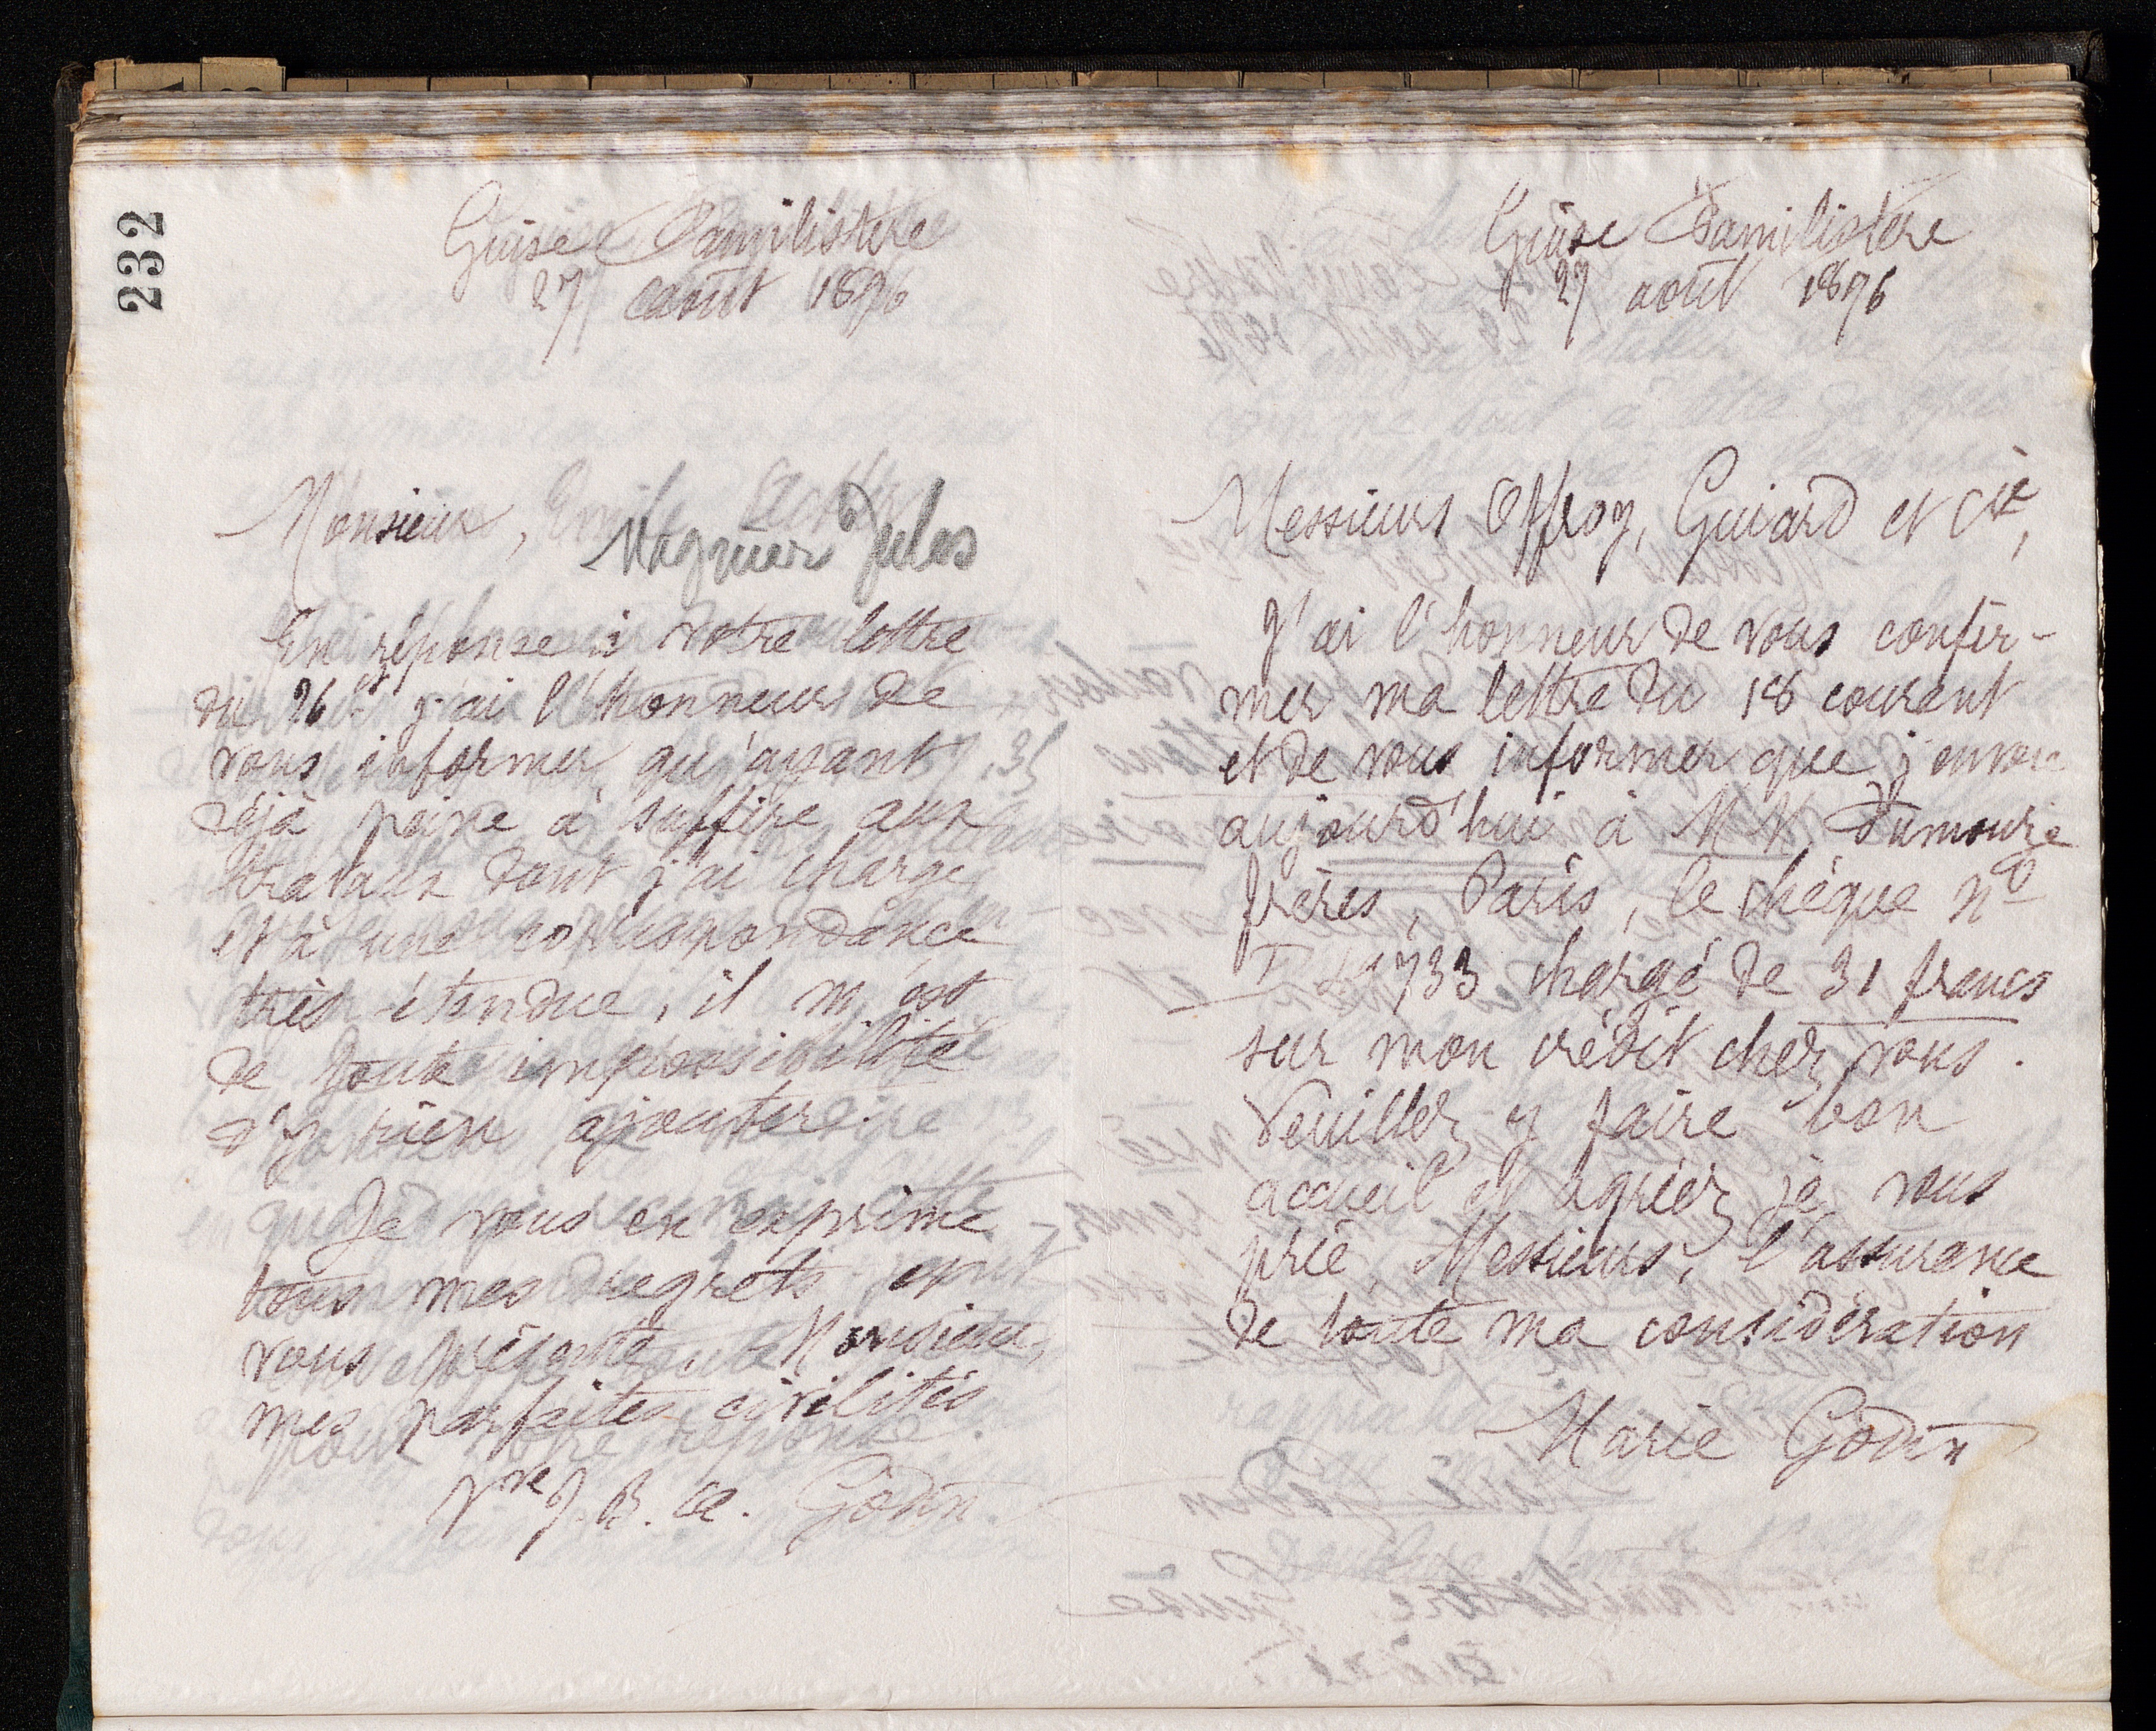 232
Guise Familistère
27 août 1896
Monsieur,
Magnier Jules
En réponse à votre lettre
du 26 ct j'ai l'honneur de
vous informer qu'ayant
déjà peine à suffire aux
travaux dont j'ai charge
et à une correspondance
très étendue, il m'est
de toute impossibilité
d'y rien ajouter.
Je vous en exprime
tous mes regrets et
vous présente, Monsieur,
mes parfaites civilités
Vve J. B. A. Godin
Guise Familistère
27 août 1896
Messieurs Offroy, Guiard et Cie,
J'ai l'honneur de vous confir-
mer ma lettre du 18 courant
et de vous informer que j'envoie
aujourd'hui à MM.
frères, Paris, le chèque No
733 chargé de 31 francs
sur mon crédit chez vous.
Veuillez y faire bon
accueil et agréer, je vous
prie, Messieurs, l'assurance
de toute ma considération
Marie Godin